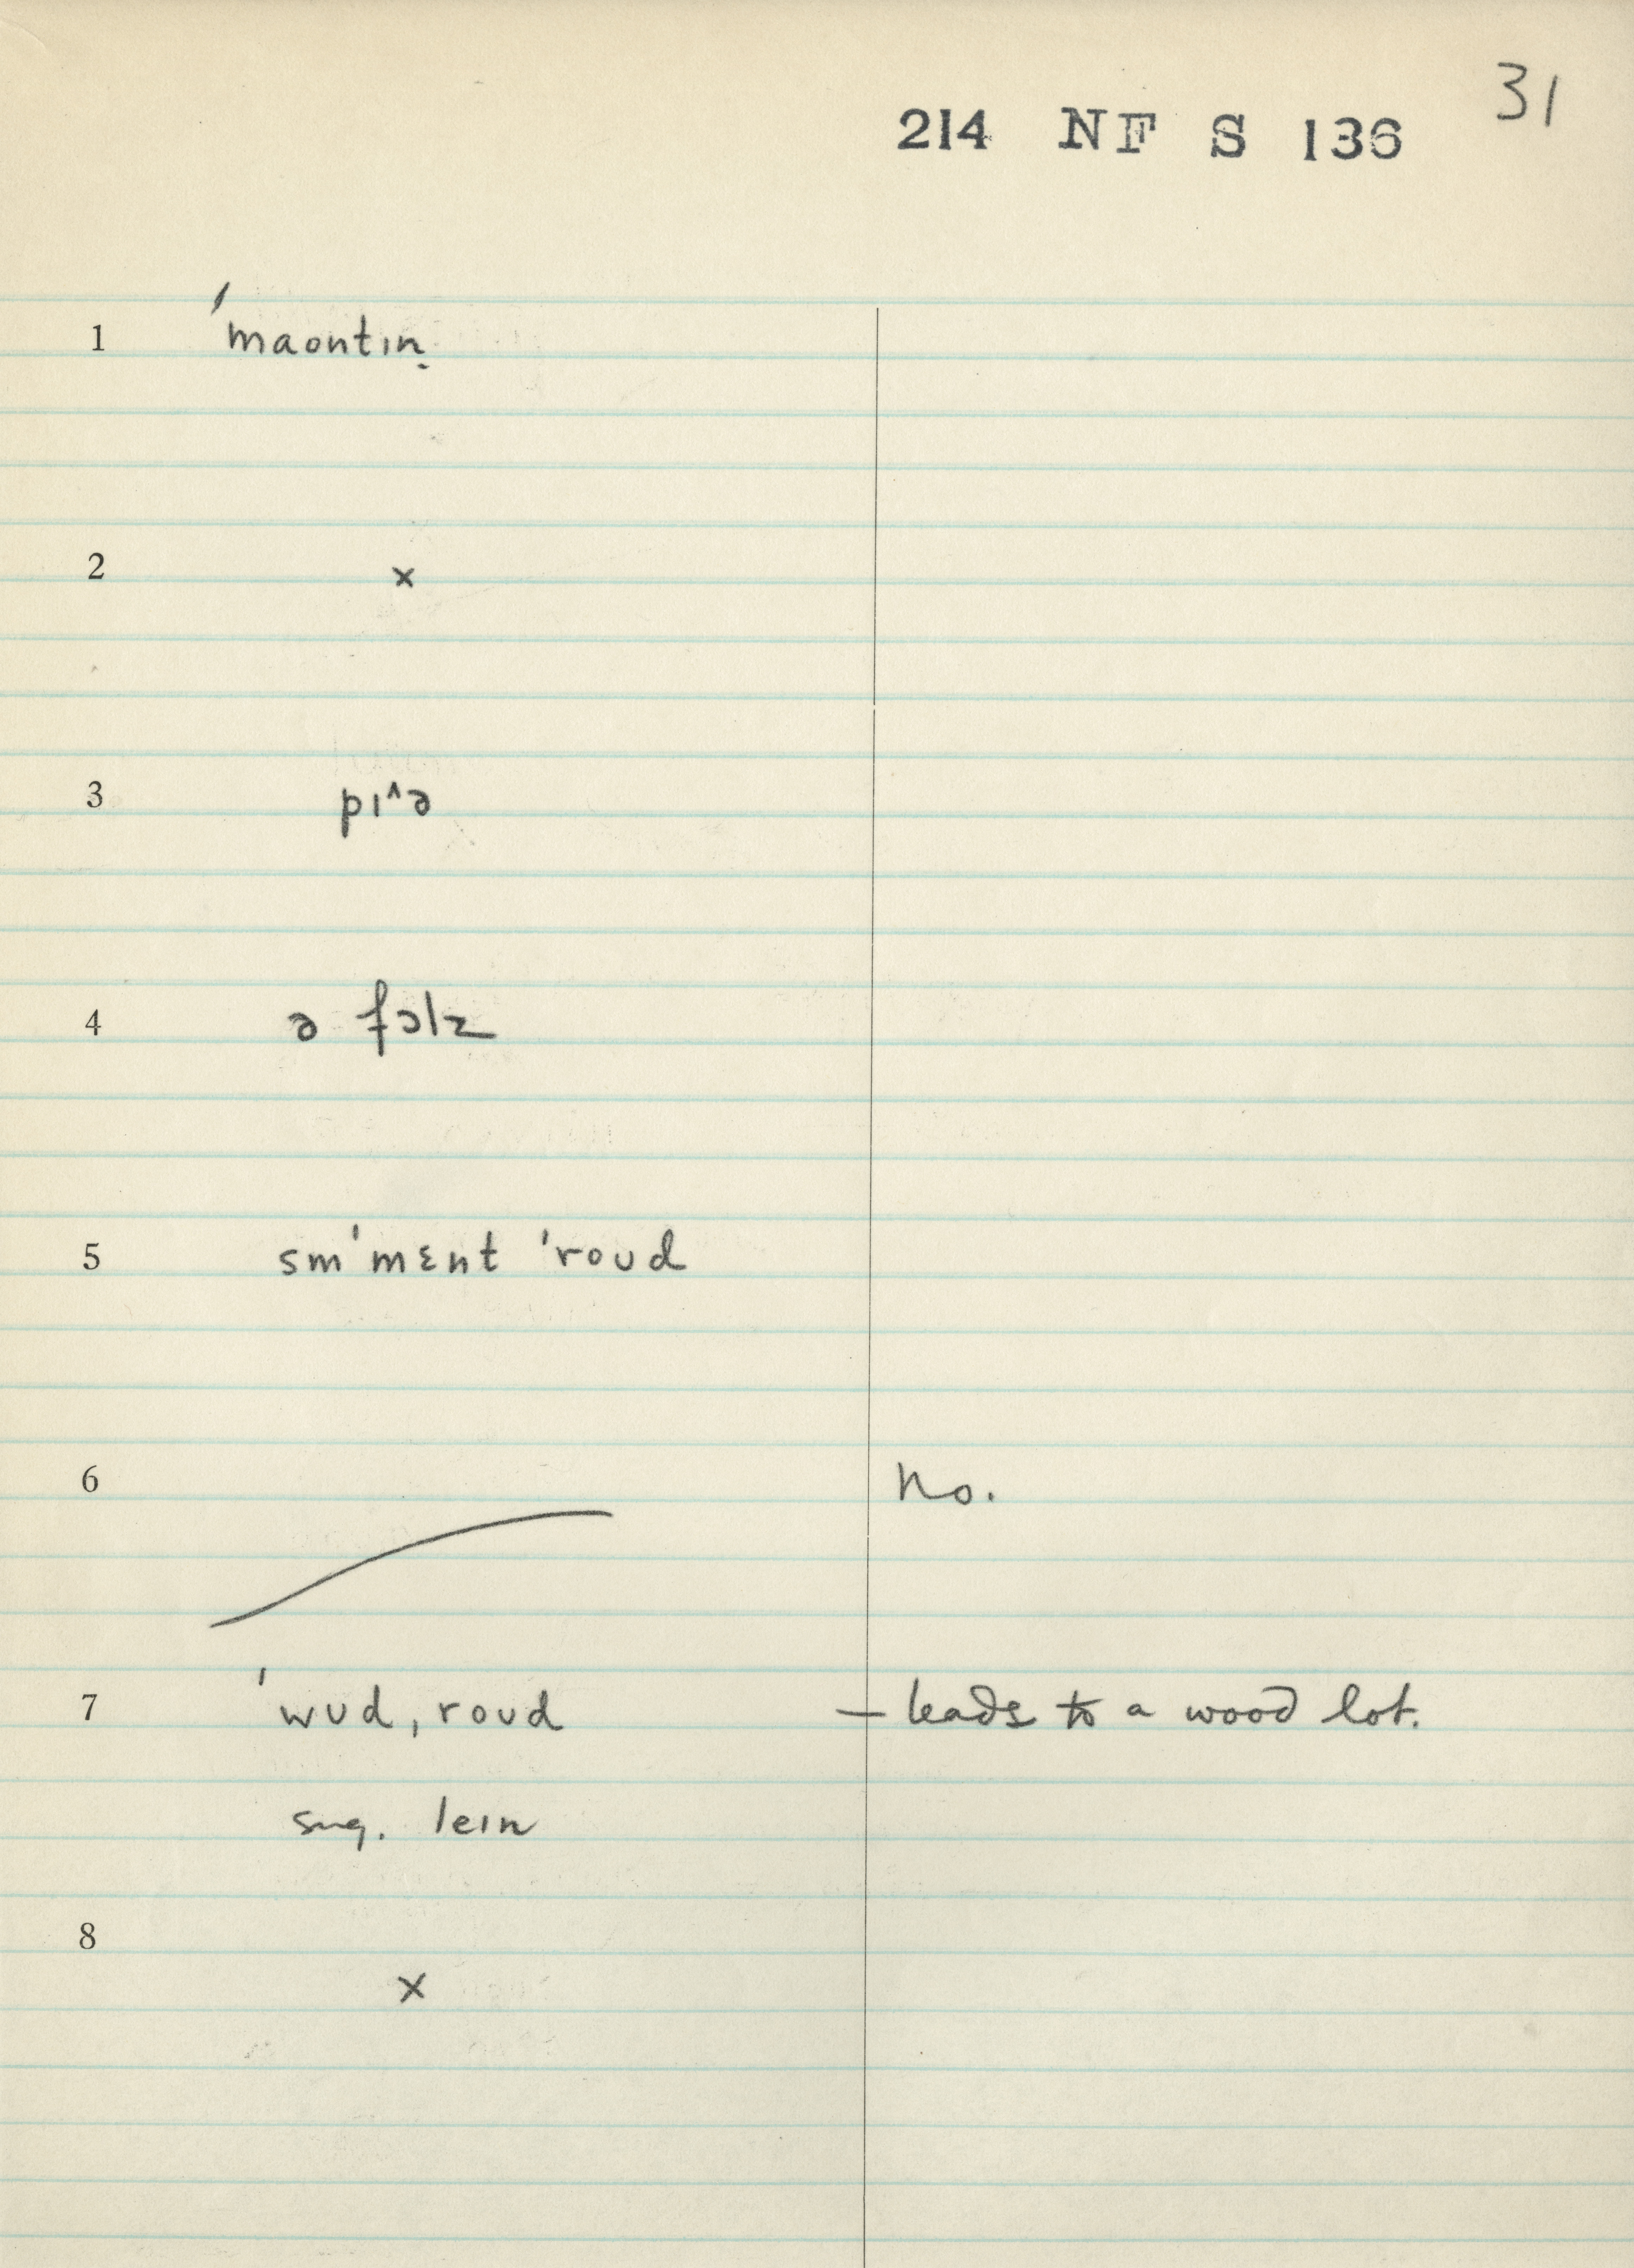 31
214 NF S 136
1 ˈmaontɪn̩
2 ×
3 pɪ^ə
4 ə fɔlz
5 smˈmɛnt ˈroʊd
6 No.
7 ˈwʊd ˌroʊd — leads to a wood lot.
sug. leɪn
8 ×